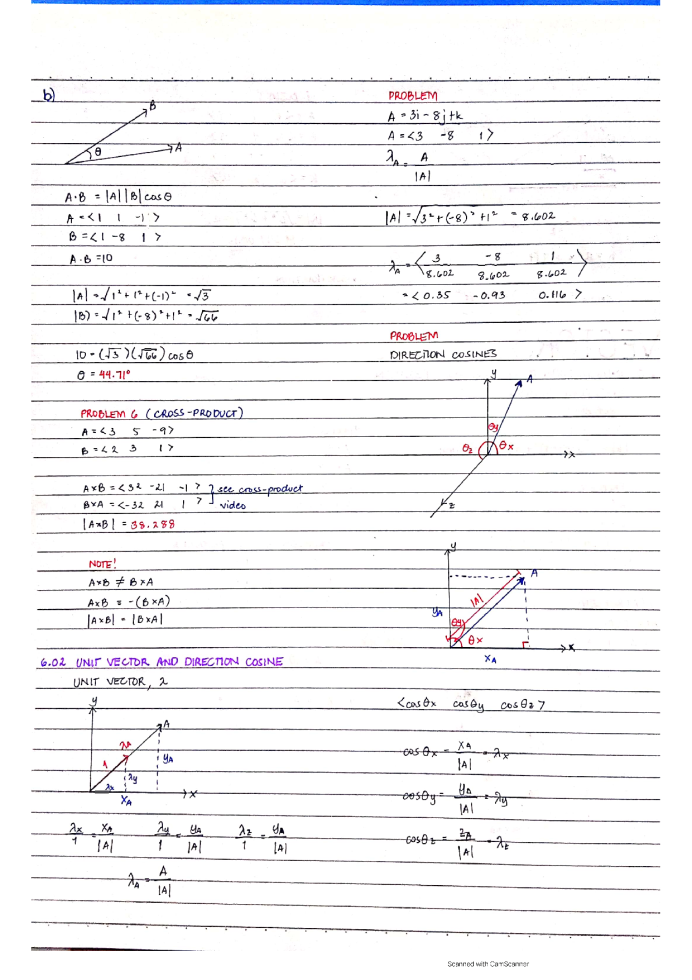 b)
B
θ
A
A·B = |A||B|cosθ
A = <1 1 -1>
B = <1 -8 1>
A·B = 10
|A| = √1² + 1² + (-1)² = √3
|B) = √1² + (-8)² + 1² = √66
10 = (√3)(√66) cosθ
θ = 44.71°
PROBLEM 6 (CROSS-PRODUCT)
A = <3 5 -9>
B = <2 3 1>
A×B = <32 -21 -1> see cross-product
B×A = <-32 21 1> video
|A×B| = 38.288
NOTE!
A×B ≠ B×A
A×B = -(B×A)
|A×B| = |B×A|
6.02 UNIT VECTOR AND DIRECTION COSINE
UNIT VECTOR, λ
y
A
λA
1
yA
λy
λx
xA
x
λx/1 = xA/|A| λy/1 = yA/|A| λz/1 = yA/|A|
λA = A/|A|
PROBLEM
A = 3i - 8j + k
A = <3 -8 1>
λA = A/|A|
|A| = √3² + (-8)² + 1² = 8.602
λA = <3/8.602 -8/8.602 1/8.602>
= <0.35 -0.93 0.116>
PROBLEM
DIRECTION COSINES
y
A
θy
θz θx
x
z
y
A
|A|
yA
θy
θx
x
xA
<cosθx cosθy cosθz>
cosθx = xA/|A| = λx
cosθy = yA/|A| = λy
cosθz = zA/|A| = λz
Scanned with CamScanner